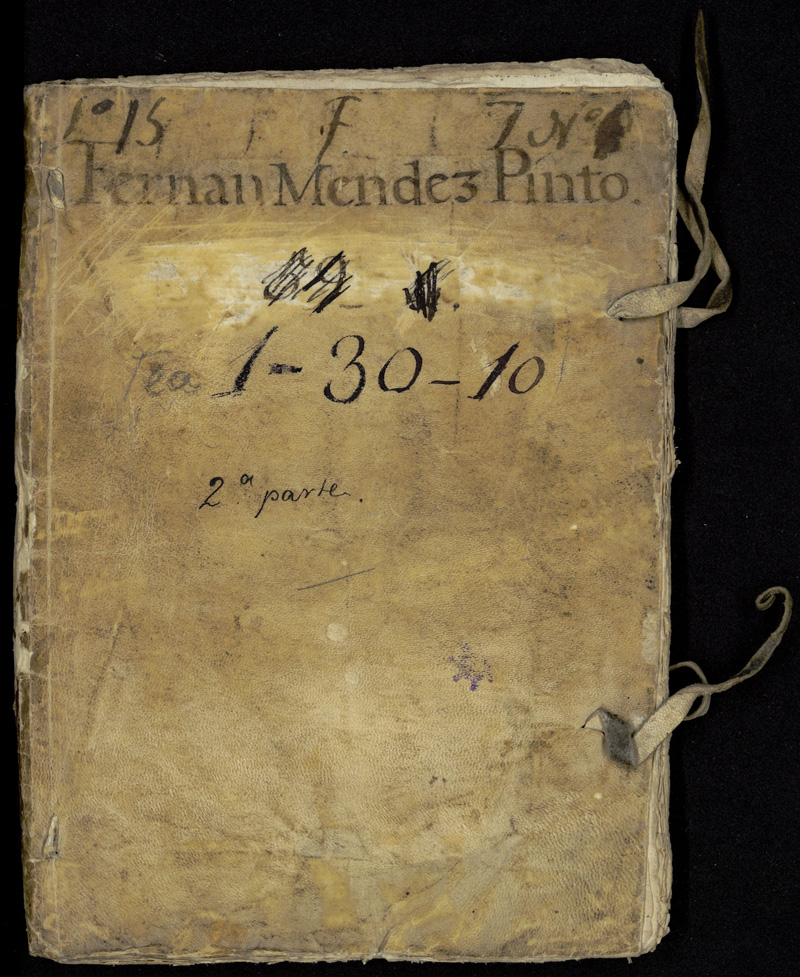 1º 15 F 7 Nº
Fernan Mendez Pinto.
Tea 1-30-10
2ª parte.